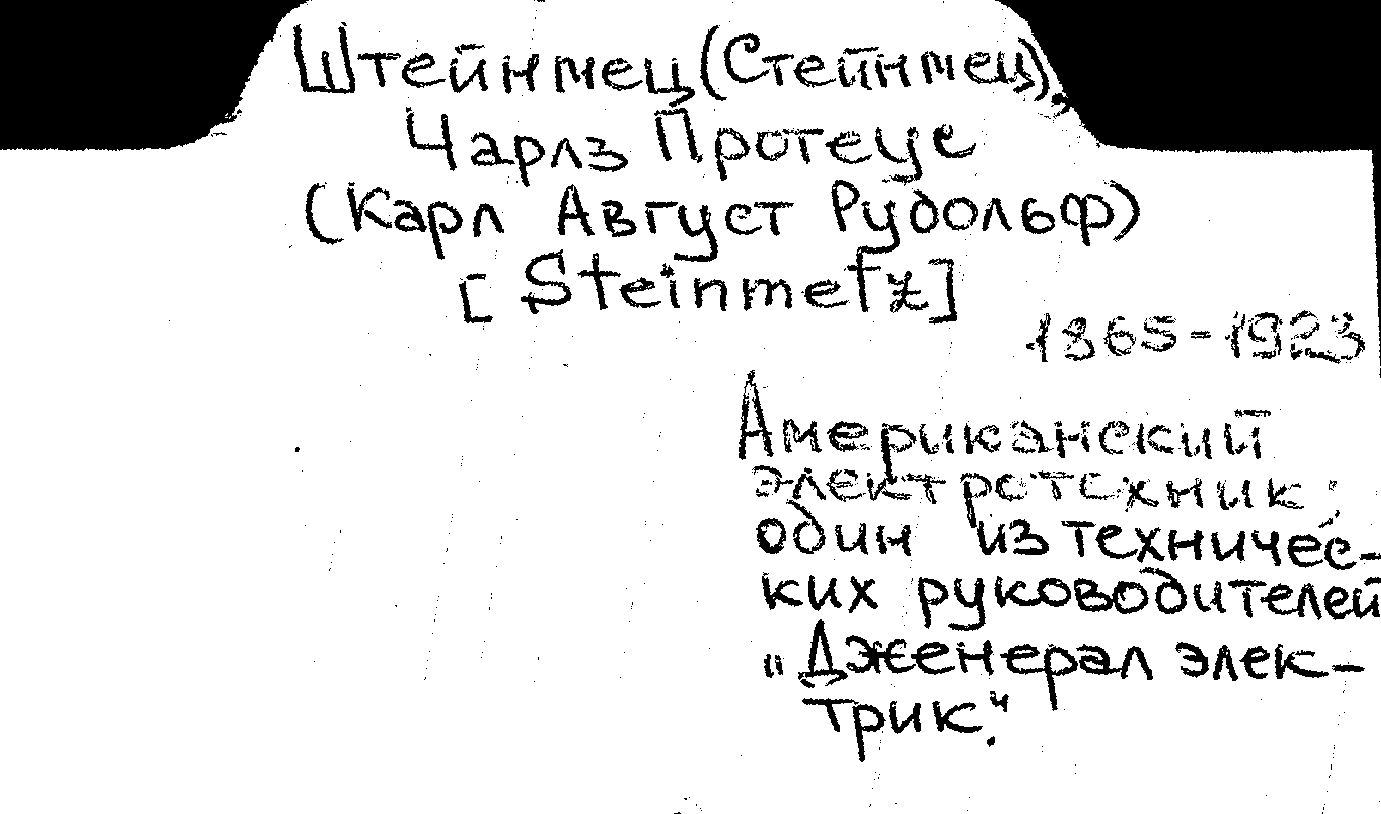 Штейнмец (Стейнмец),
Чарлз Протеус
(Карл Август Рудольф)
[Steinmetz]
1865-1923
Американский
электротехник;
один из техничес-
ких руководителей
"Дженерал элек-
трик".